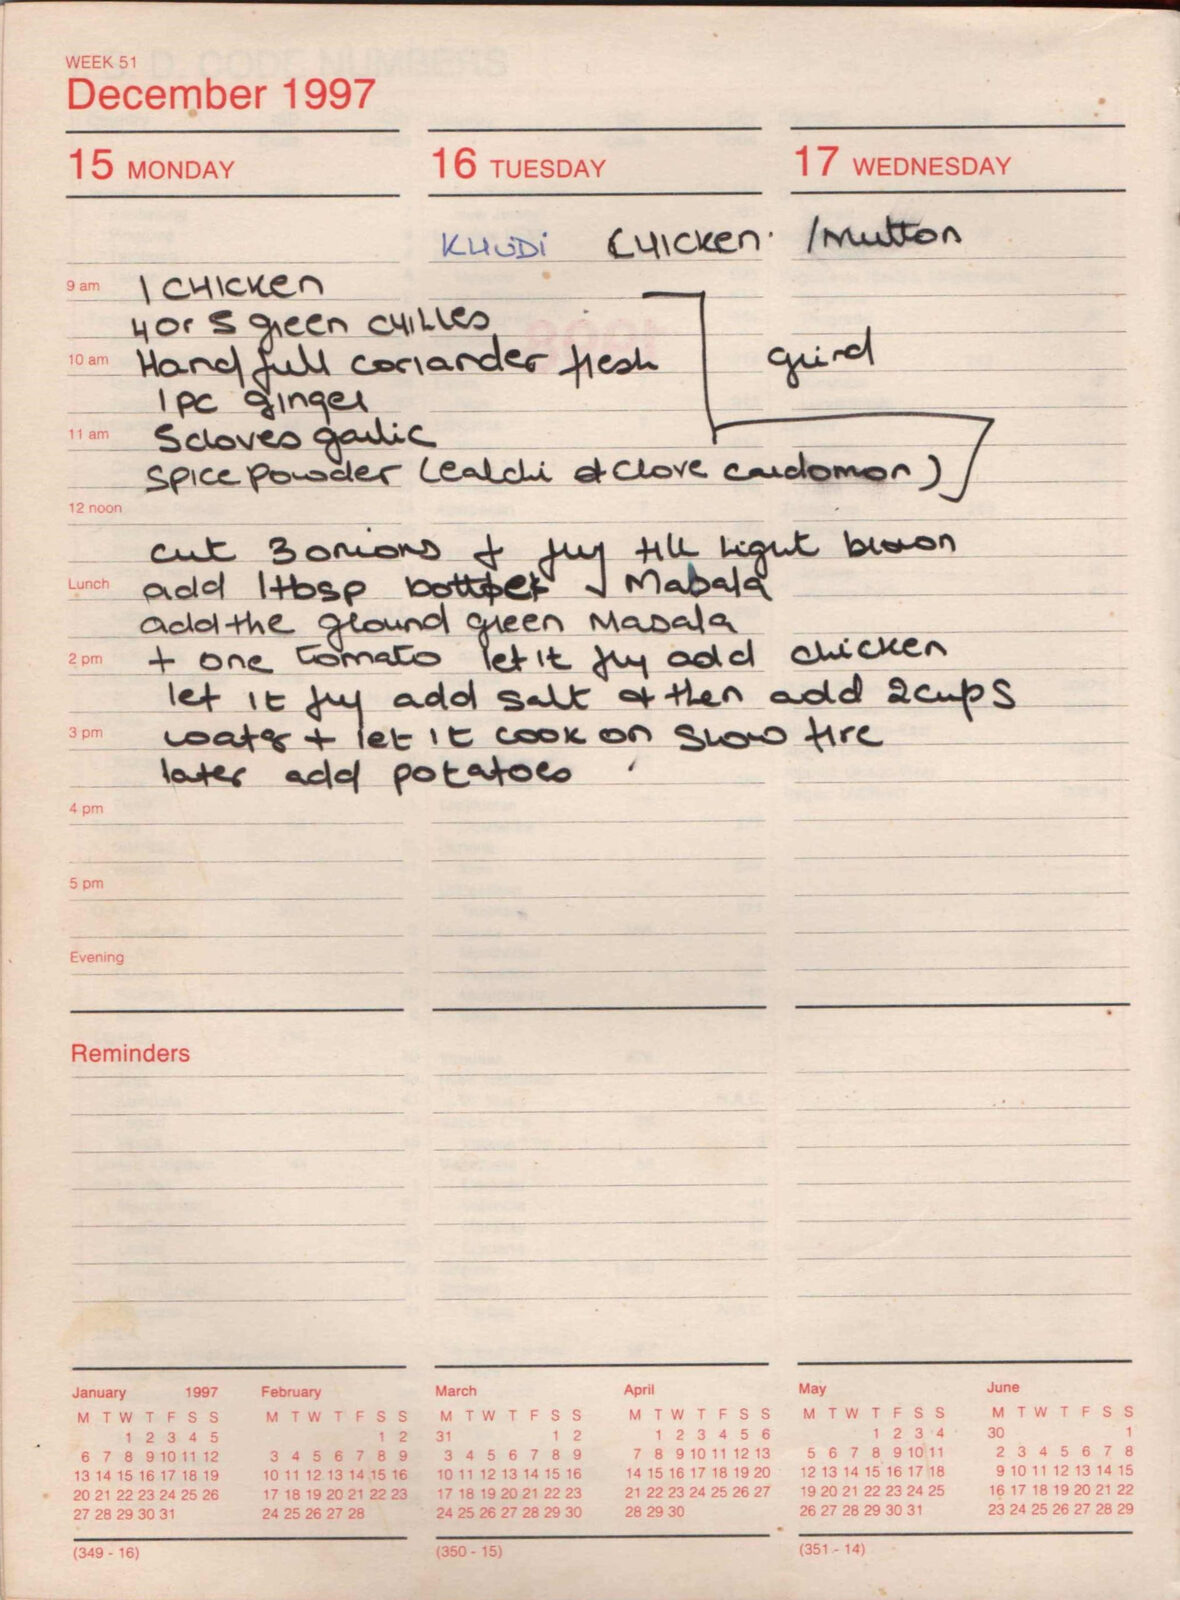 WEEK 51
December 1997
15 MONDAY
16 TUESDAY
17 WEDNESDAY
KHUDI CHICKEN. /Mutton
9 am
1 CHICKEN
4 or 5 green CHILLES
10 am
Hand full coriander fresh
grind
1 pc ginger
11 am
5 cloves garlic
spice powder (ealchi & clove cardomon)
12 noon
cut 3 onions & fry till light brown
Lunch
add 1 tbsp Masala
add the ground green Masala
2 pm
+ one tomato let it fry add chicken
let it fry add salt & then add 2 cups
3 pm
water + let it cook on slow fire
later add potatoes
4 pm
5 pm
Evening
Reminders
January 1997
M T W T F S S
1 2 3 4 5
6 7 8 9 10 11 12
13 14 15 16 17 18 19
20 21 22 23 24 25 26
27 28 29 30 31
February
M T W T F S S
1 2
3 4 5 6 7 8 9
10 11 12 13 14 15 16
17 18 19 20 21 22 23
24 25 26 27 28
March
M T W T F S S
31 1 2
3 4 5 6 7 8 9
10 11 12 13 14 15 16
17 18 19 20 21 22 23
24 25 26 27 28 29 30
April
M T W T F S S
1 2 3 4 5 6
7 8 9 10 11 12 13
14 15 16 17 18 19 20
21 22 23 24 25 26 27
28 29 30
May
M T W T F S S
1 2 3 4
5 6 7 8 9 10 11
12 13 14 15 16 17 18
19 20 21 22 23 24 25
26 27 28 29 30 31
June
M T W T F S S
30 1
2 3 4 5 6 7 8
9 10 11 12 13 14 15
16 17 18 19 20 21 22
23 24 25 26 27 28 29
(349 - 16)
(350 - 15)
(351 - 14)